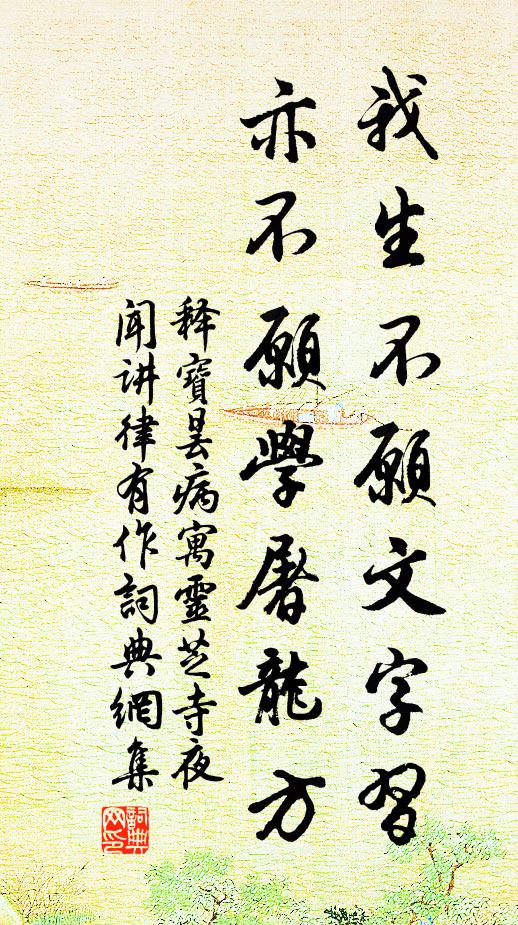 我生不願文字習
亦不願學屠龍方
释寶曇病寓靈芝寺夜
闻讲律有作詞典網集
詞典
网印